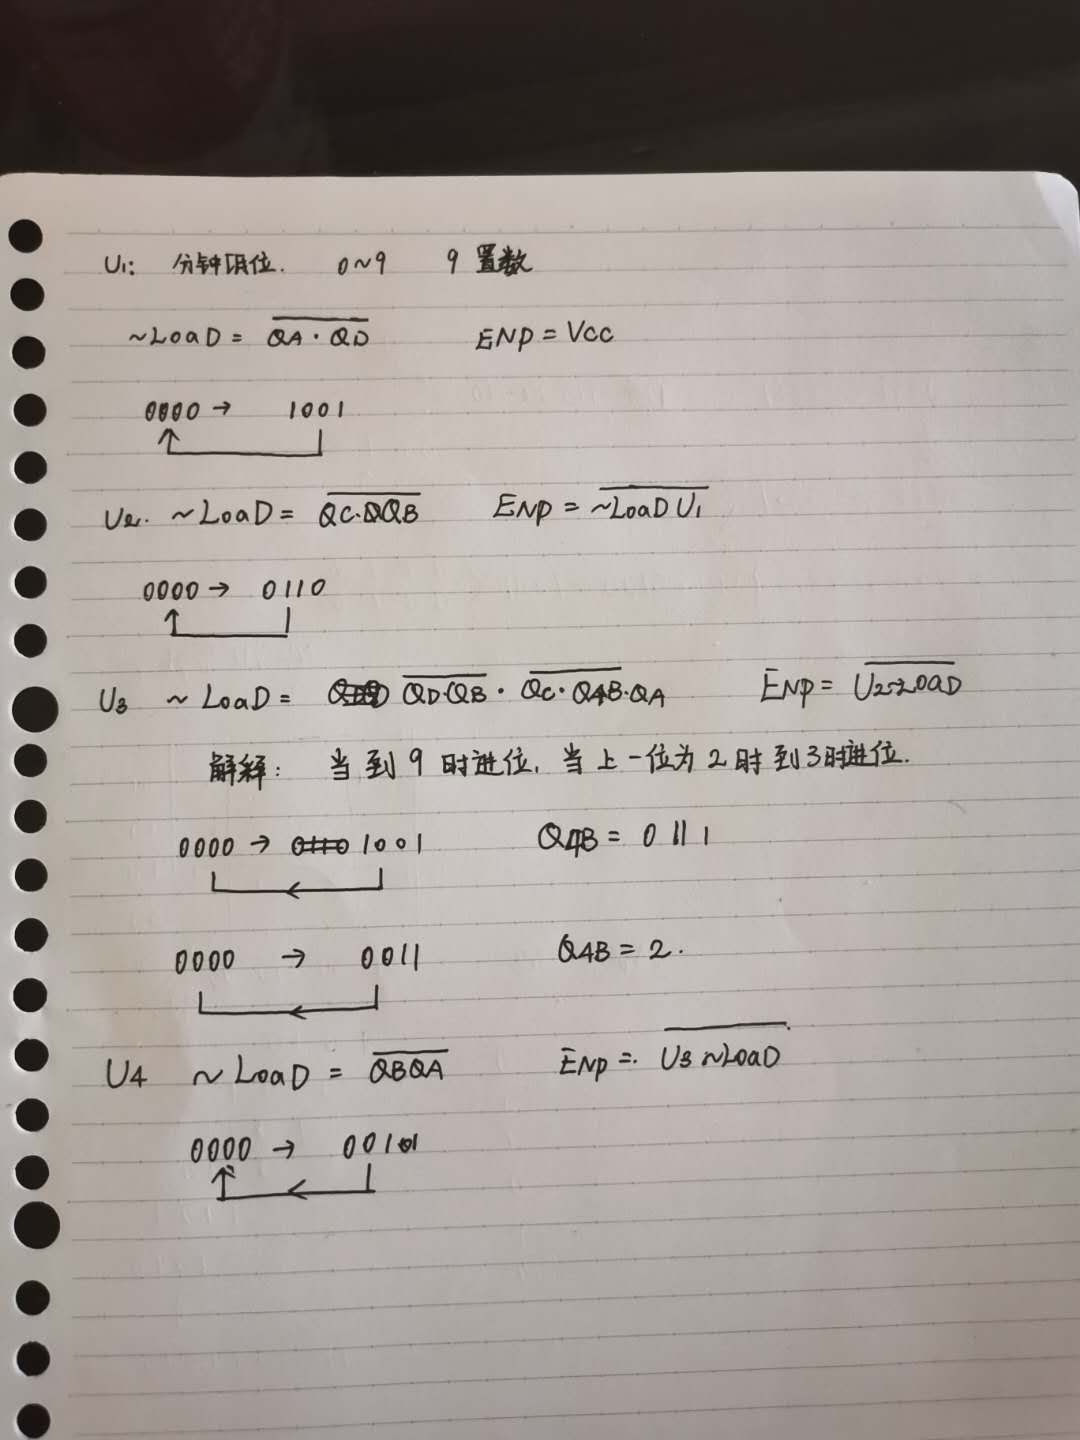 U1: 分钟低位. 0~9 9 置数
~LoaD = QA·QD ENP = VCC
0000 → 1001
U2. ~LoaD = QC·QB ENP = ~LoaD U1
0000 → 0110
U3 ~LoaD = QD·QB · QC·Q4B·QA ENP = U2~LoaD
解释: 当到9时进位, 当上一位为2时到3时进位.
0000 → 1001 Q4B = 0 1 1 1
0000 → 0011 Q4B = 2.
U4 ~LoaD = QBQA ENP = U3~LoaD
0000 → 001